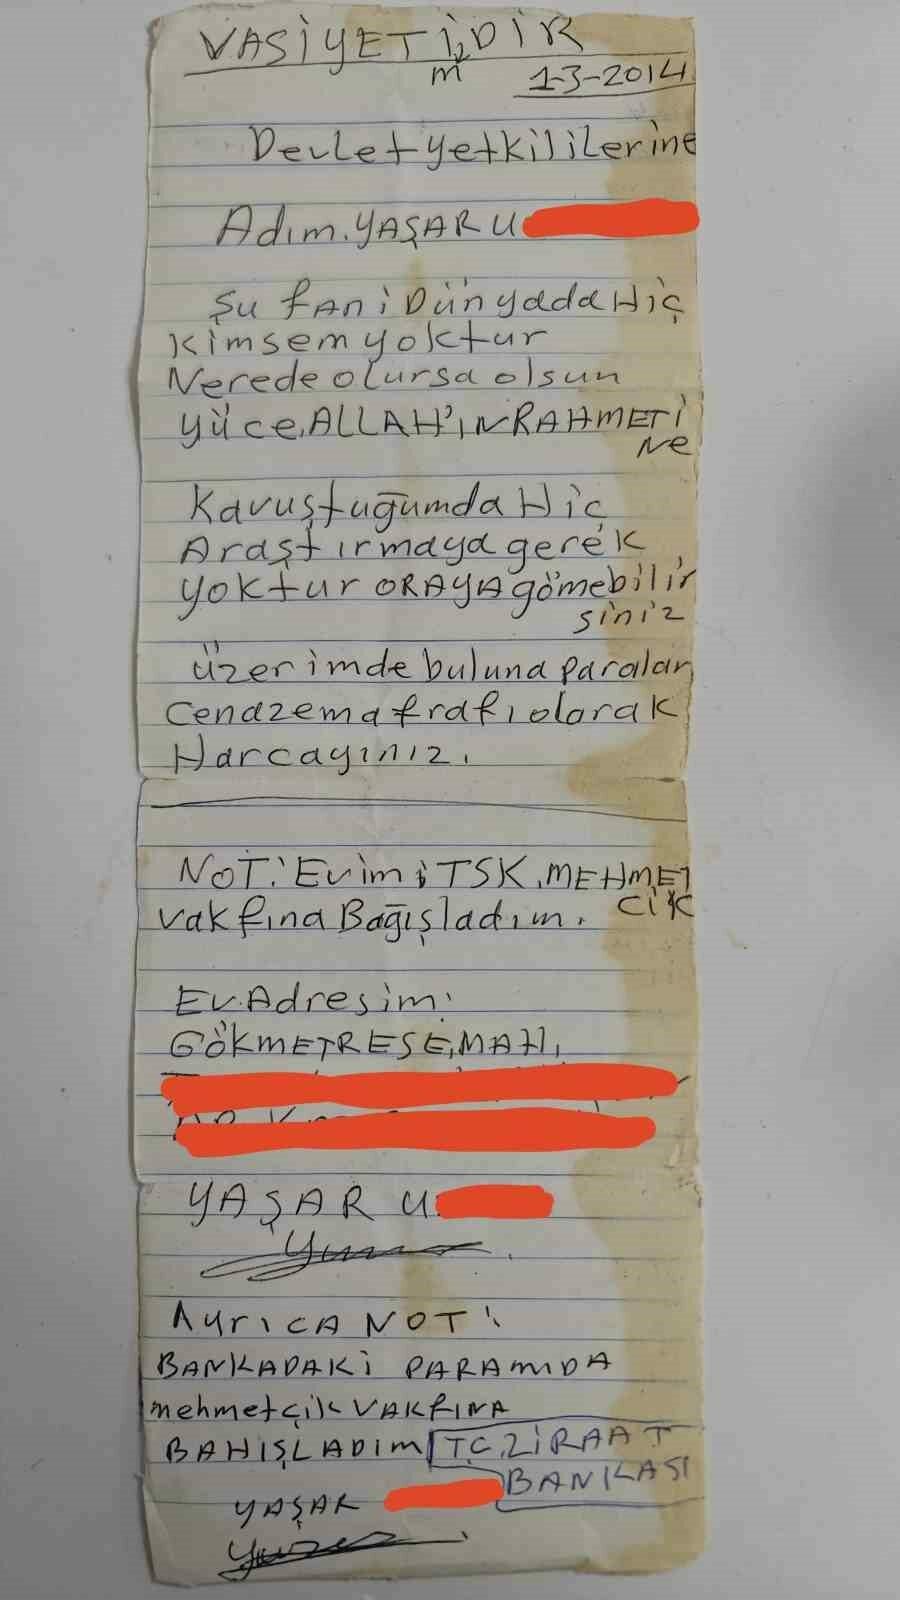 VASİYETİMDİR
1-3-2014
Devlet yetkililerine
Adım. YAŞAR U
Şu fAni Dünyada Hiç
Kimsem yoktur
Nerede olursa olsun
yüce ALLAH'IN RAHMETİ
Ne
Kavuştuğumda Hiç
Araştırmaya gerek
yoktur ORAYA gömebilir
siniz
üzerimde buluna paraları
Cenazema frafı olarak
Harcayınız.
NOT: Evimi TSK. MEHMET
CİK
vakfına Bağışladım.
Ev Adresim:
GÖKMETRESE, MAH,
YAŞAR U
AyrıCA NOT:
BANKADAKİ PARAMIDA
mehmetçik VAKFINA
BAHIŞLADIM T.C. ZİRAAT
BANKASI
YAŞAR